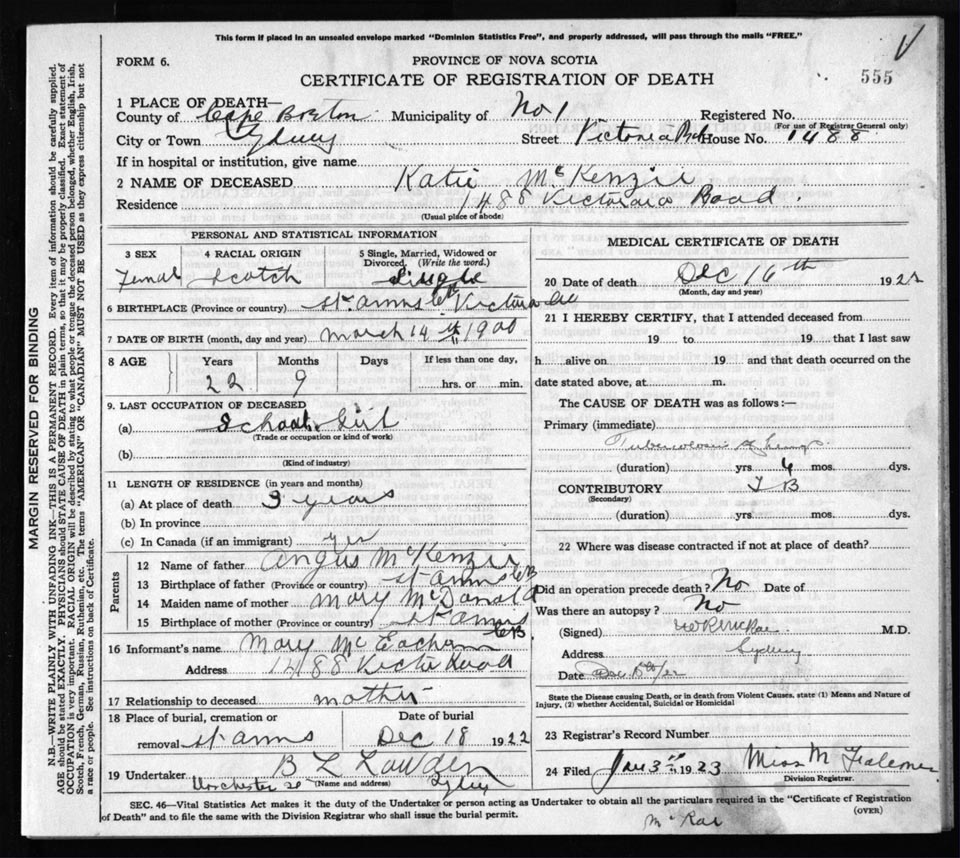 This form if placed in an unsealed envelope marked "Dominion Statistics Free", and properly addressed, will pass through the mails "FREE."
FORM 6.
PROVINCE OF NOVA SCOTIA
CERTIFICATE OF REGISTRATION OF DEATH
555
1 PLACE OF DEATH—
County of Cape Breton Municipality of No 1 Registered No.
(For use of Registrar General only)
City or Town Sydney Street Victoria Rd House No. 1488
If in hospital or institution, give name
2 NAME OF DECEASED Katie McKenzie
Residence 1488 Victoria Road.
(Usual place of abode)
PERSONAL AND STATISTICAL INFORMATION
3 SEX 4 RACIAL ORIGIN 5 Single, Married, Widowed or Divorced. (Write the word.)
Female Scotch Single
6 BIRTHPLACE (Province or country) St. Anns Victoria
7 DATE OF BIRTH (month, day and year) March 14th 1900
8 AGE Years Months Days If less than one day,
22 9 hrs. or min.
9. LAST OCCUPATION OF DECEASED
(a) School Girl
(Trade or occupation or kind of work)
(b)
(Kind of industry)
11 LENGTH OF RESIDENCE (in years and months)
(a) At place of death 3 years
(b) In province
(c) In Canada (if an immigrant) yes
Parents
12 Name of father Angus McKenzie
13 Birthplace of father (Province or country) St Anns CB
14 Maiden name of mother Mary McDonald
15 Birthplace of mother (Province or country) St Anns CB
16 Informant's name Mary McEachern
Address 1488 Victo Road
17 Relationship to deceased mother
18 Place of burial, cremation or removal St Anns Date of burial Dec 18 1922
19 Undertaker B L
(Name and address)
Dorchester St Sydney
MEDICAL CERTIFICATE OF DEATH
20 Date of death Dec 16th 1922
(Month, day and year)
21 I HEREBY CERTIFY, that I attended deceased from
19 to 19 that I last saw
h alive on 19 and that death occurred on the
date stated above, at m.
The CAUSE OF DEATH was as follows:—
Primary (immediate)
Tuberculosis of Lungs
(duration) yrs. 4 mos. dys.
CONTRIBUTORY T B
(Secondary)
(duration) yrs. mos. dys.
22 Where was disease contracted if not at place of death?
Did an operation precede death? No Date of
Was there an autopsy? No
(Signed) M.D.
Address Sydney
Date Dec
State the Disease causing Death, or in death from Violent Causes, state (1) Means and Nature of
Injury, (2) whether Accidental, Suicidal or Homicidal
23 Registrar's Record Number
24 Filed Jan 3rd 1923 Miss M Falconer
Division Registrar.
SEC. 46—Vital Statistics Act makes it the duty of the Undertaker or person acting as Undertaker to obtain all the particulars required in the "Certificate of Registration
of Death" and to file the same with the Division Registrar who shall issue the burial permit.
(OVER)
McRae
MARGIN RESERVED FOR BINDING
N.B.—WRITE PLAINLY WITH UNFADING INK—THIS IS A PERMANENT RECORD. Every item of information should be carefully supplied.
AGE should be stated EXACTLY. PHYSICIANS should STATE CAUSE OF DEATH in plain terms, so that it may be properly classified. Exact statement of
OCCUPATION is very important. RACIAL ORIGIN will be described by stating to what people or tongue the deceased person belonged, whether English, Irish,
Scotch, French, German, Russian, Ruthenian, etc. The terms "AMERICAN" OR "CANADIAN" MUST NOT BE USED as they express citizenship but not
a race or people. See instructions on back of Certificate.